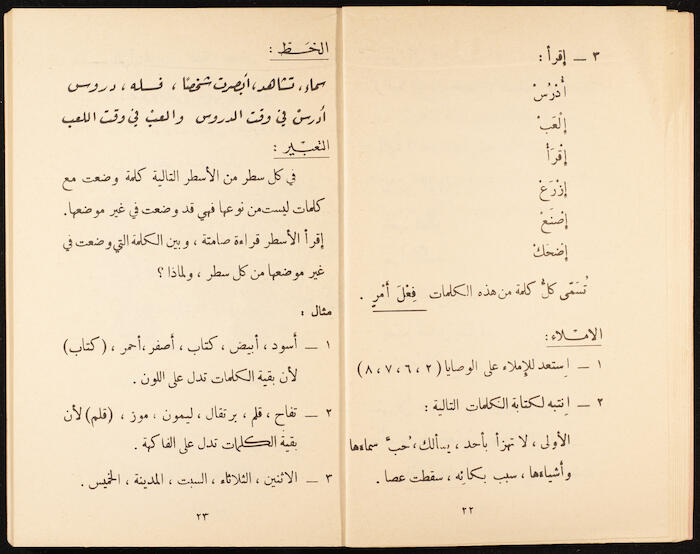 ٣ ــ إقرأ :
أُدْرُسْ
إِلْعَبْ
إِقْرَأْ
إِزْرَعْ
إِصْنَعْ
إِضْحَكْ
تُسَمّى كلُّ كلمة من هذه الكلمات فِعْلَ أَمْرٍ .
الإملاء :
١ ــ إستعد للإملاء على الوصايا ( ٢ ، ٦ ، ٧ ، ٨ )
٢ ــ إنتبه لكتابة الكلمات التالية :
الأولى ، لا تهزأ بأحد ، يسألك ، حُبَّ سماعها
وأشياءها ، سبب بكائه ، سقطت عصا .
٢٢
الخَـط :
سماء ، تشاهد ، أبصرت شخصًا ، فسله ، دروس
أدرسْ في وقت الدروس والعبْ في وقت اللعب
التعبـير :
في كل سطر من الأسطر التالية كلمة وضعت مع
كلمات ليست من نوعها فهي قد وضعت في غير موضعها .
إقرأ الأسطر قراءة صامتة ، وبين الكلمة التي وضعت في
غير موضعها من كل سطر ، ولماذا ؟
مثال :
١ ــ أسود ، أبيض ، كتاب ، أصفر ، أحمر ، (كتاب)
لأن بقية الكلمات تدل على اللون .
٢ ــ تفاح ، قلم ، برتقال ، ليمون ، موز ، (قلم) لأن
بقية الكلمات تدل على الفاكهة .
٣ ــ الاثنين ، الثلاثاء ، السبت ، المدينة ، الخميس .
٢٣